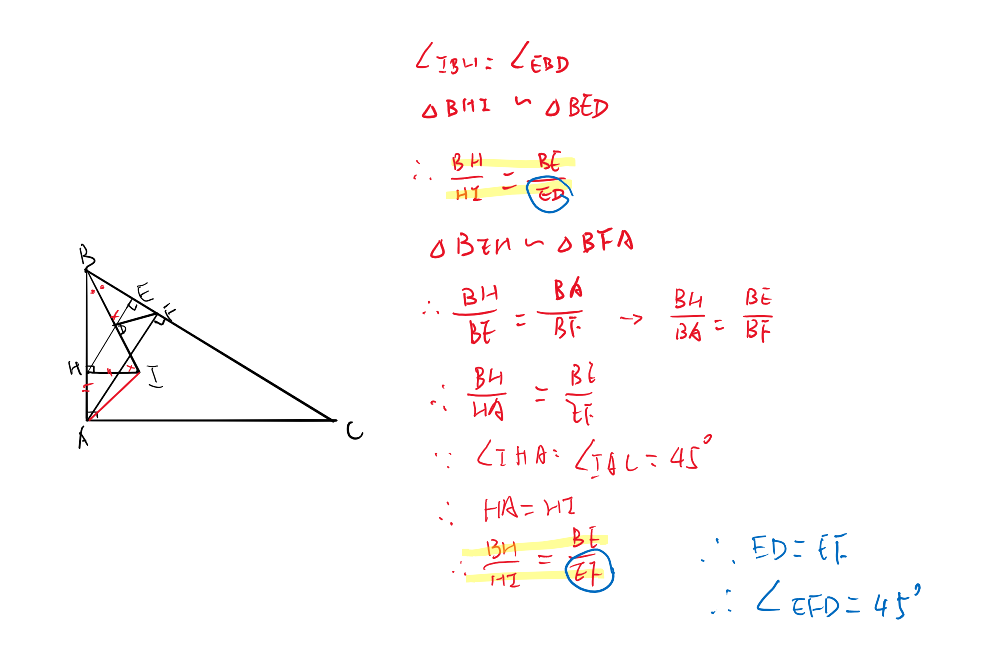 ∠IBH = ∠EBD
△BHI ∽ △BED
∴ BH/HI = BE/ED
△BEH ∽ △BFA
∴ BH/BE = BA/BF → BH/BA = BE/BF
∴ BH/HA = BE/EF
∵ ∠IHA = ∠IAC = 45°
∴ HA = HI
∴ BH/HI = BE/EF
∴ ED = EF
∴ ∠EFD = 45°
B
E
F
D
H
I
A
C